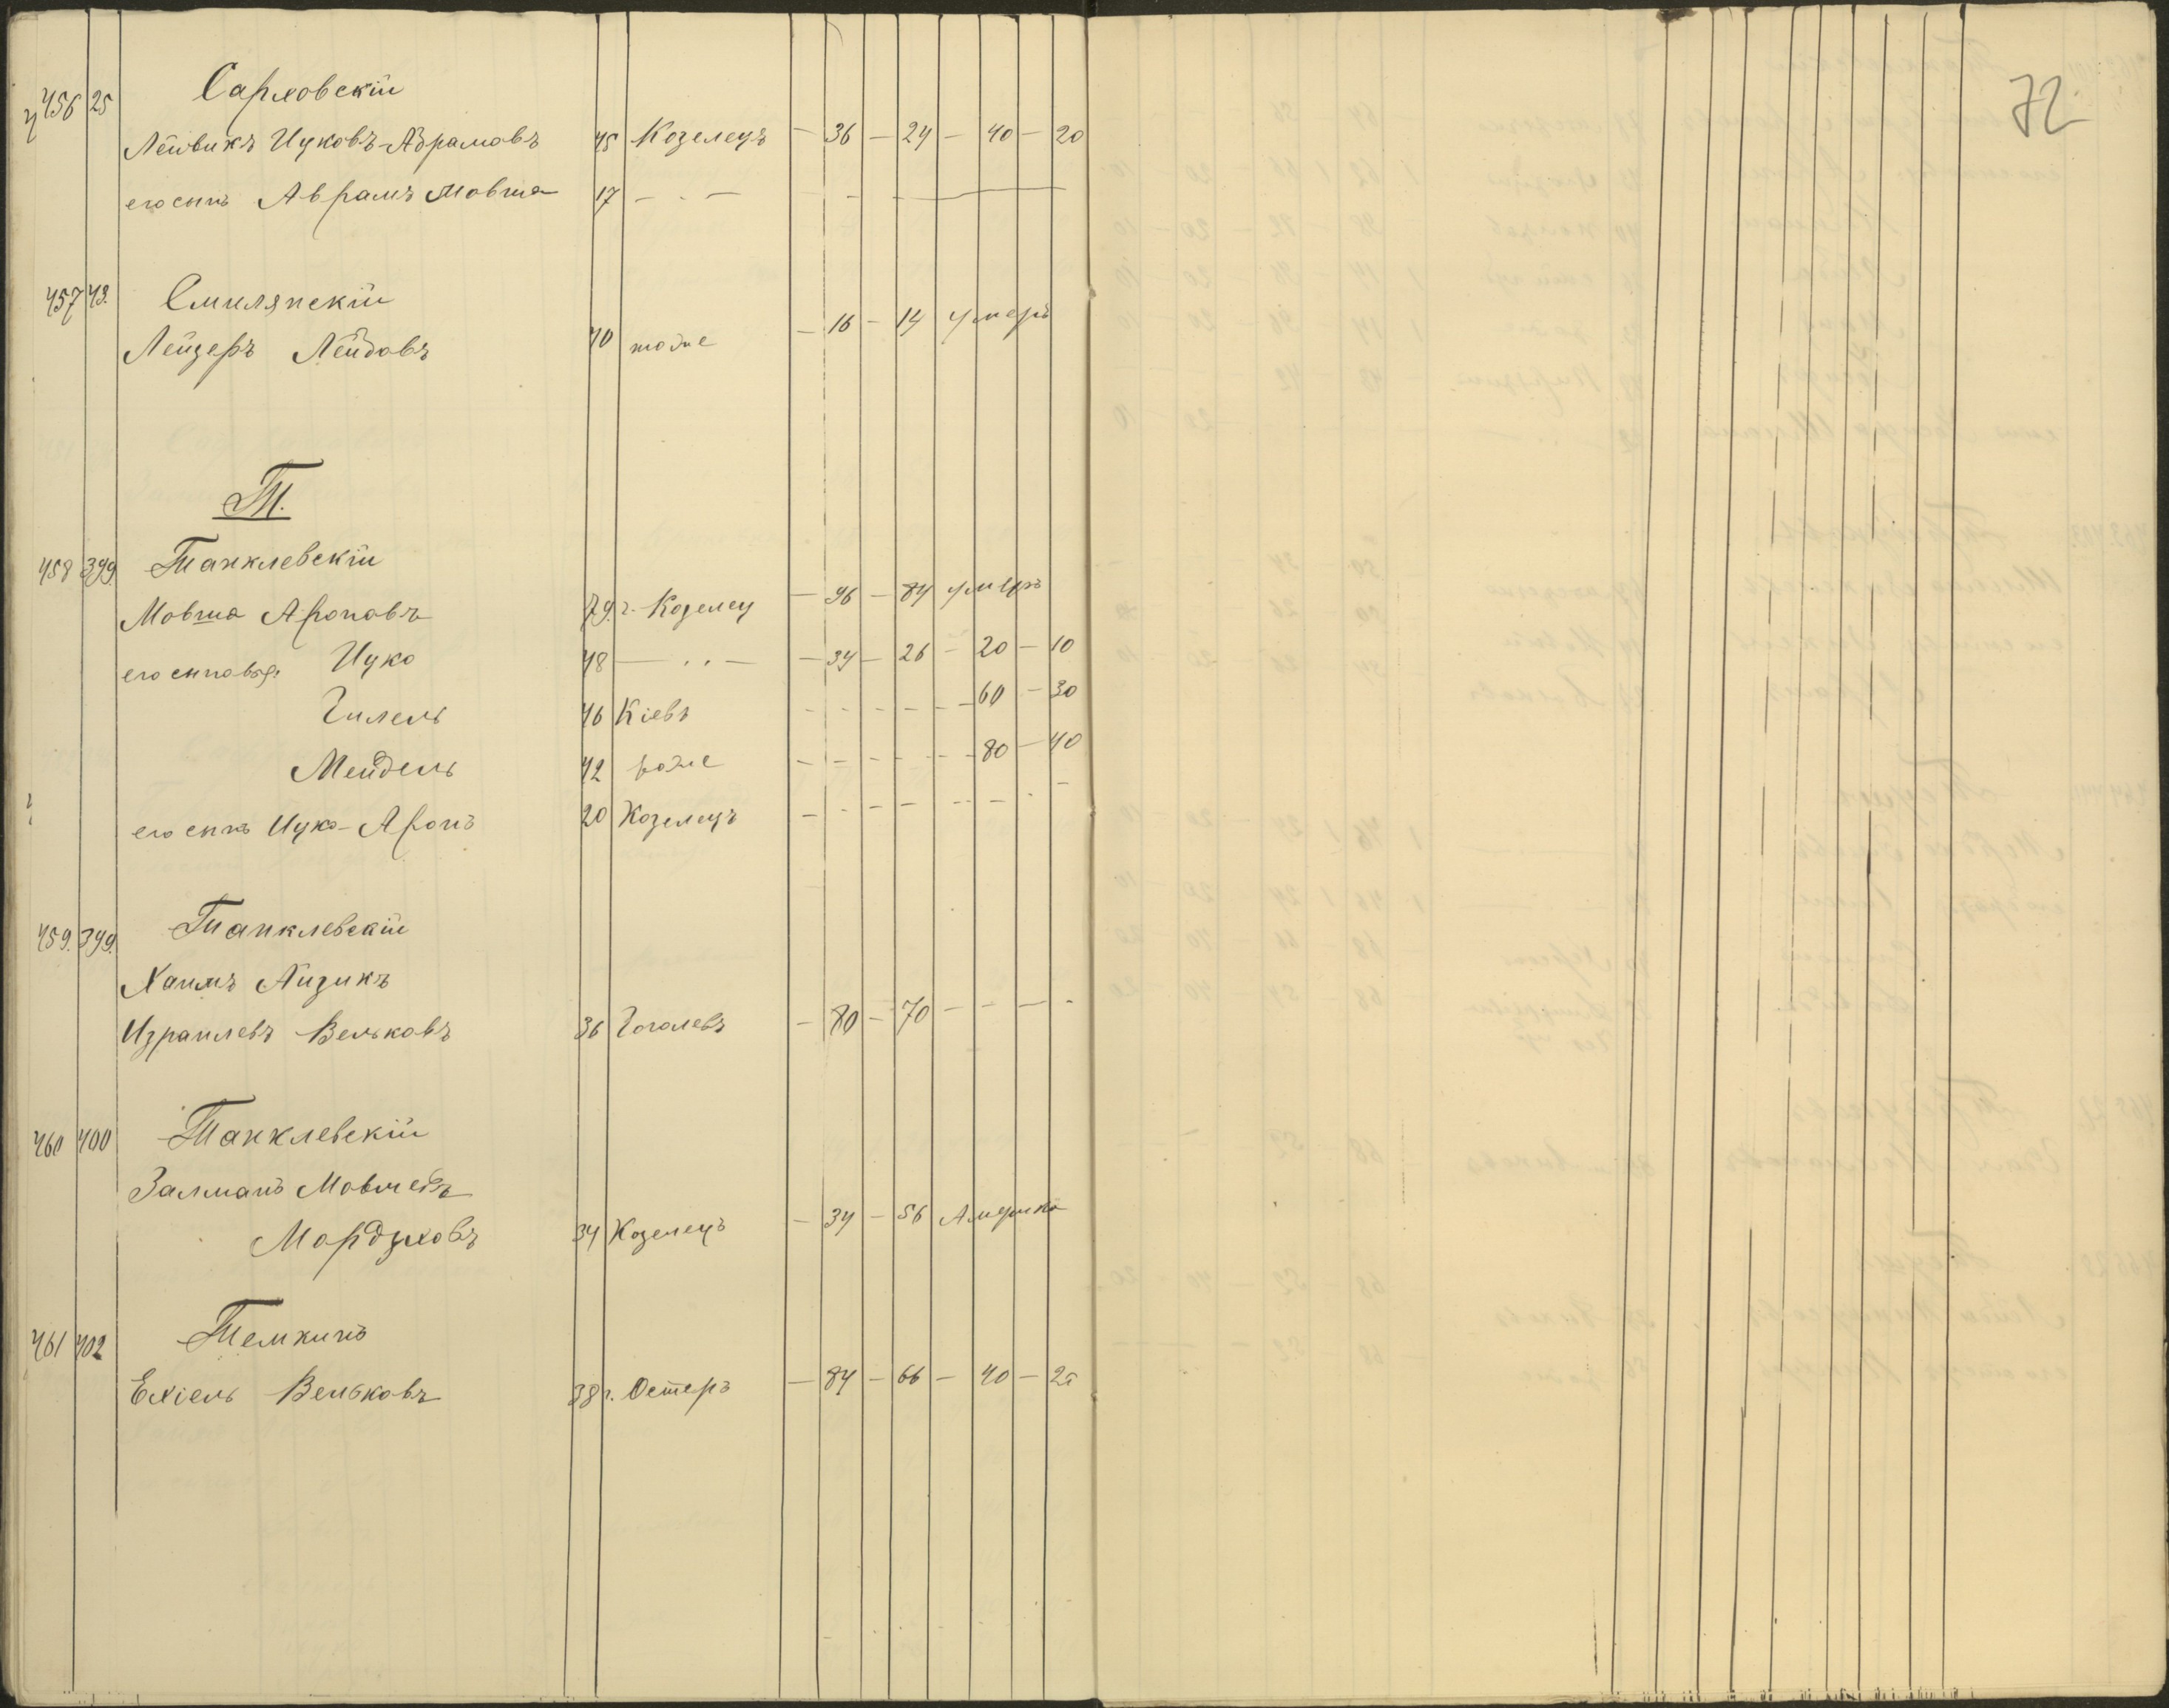 72
456 25 Сарховскій
Лейвикъ Ицковъ-Абрамовъ 45 Козелецъ — 36 — 24 — 40 — 20
его сынъ Аврамъ Мовша 17 — . —
457 43. Смилянскій
Лейзеръ Лейбовъ 40 тоже — 16 — 14 умеръ
Т.
458 399. Танклевскій
Мовша Ароновъ 79. г. Козелец — 96 — 84 умеръ
его сыновья: Ицко 48 — . . — — 34 — 26 — 20 — 10
Гилель 46 Кіевъ - - - - - - 60 - 30
Мендель 42 тоже - - - - - - 80 — 40
его сынъ Ицко-Аронъ 20 Козелецъ - - - - - - -
459. 399. Танклевскій
Хаимъ Айзикъ
Израилевъ Вельковъ 36 Гоголевъ — 80 — 70 - - — -
460 400 Танклевскій
Залманъ Мовшевъ
Мордуховъ 34 Козелецъ — 34 — 56 Америка
461 402 Темкинъ
Ехіель Вельковъ 38 г. Остеръ — 84 — 66 — 40 — 20